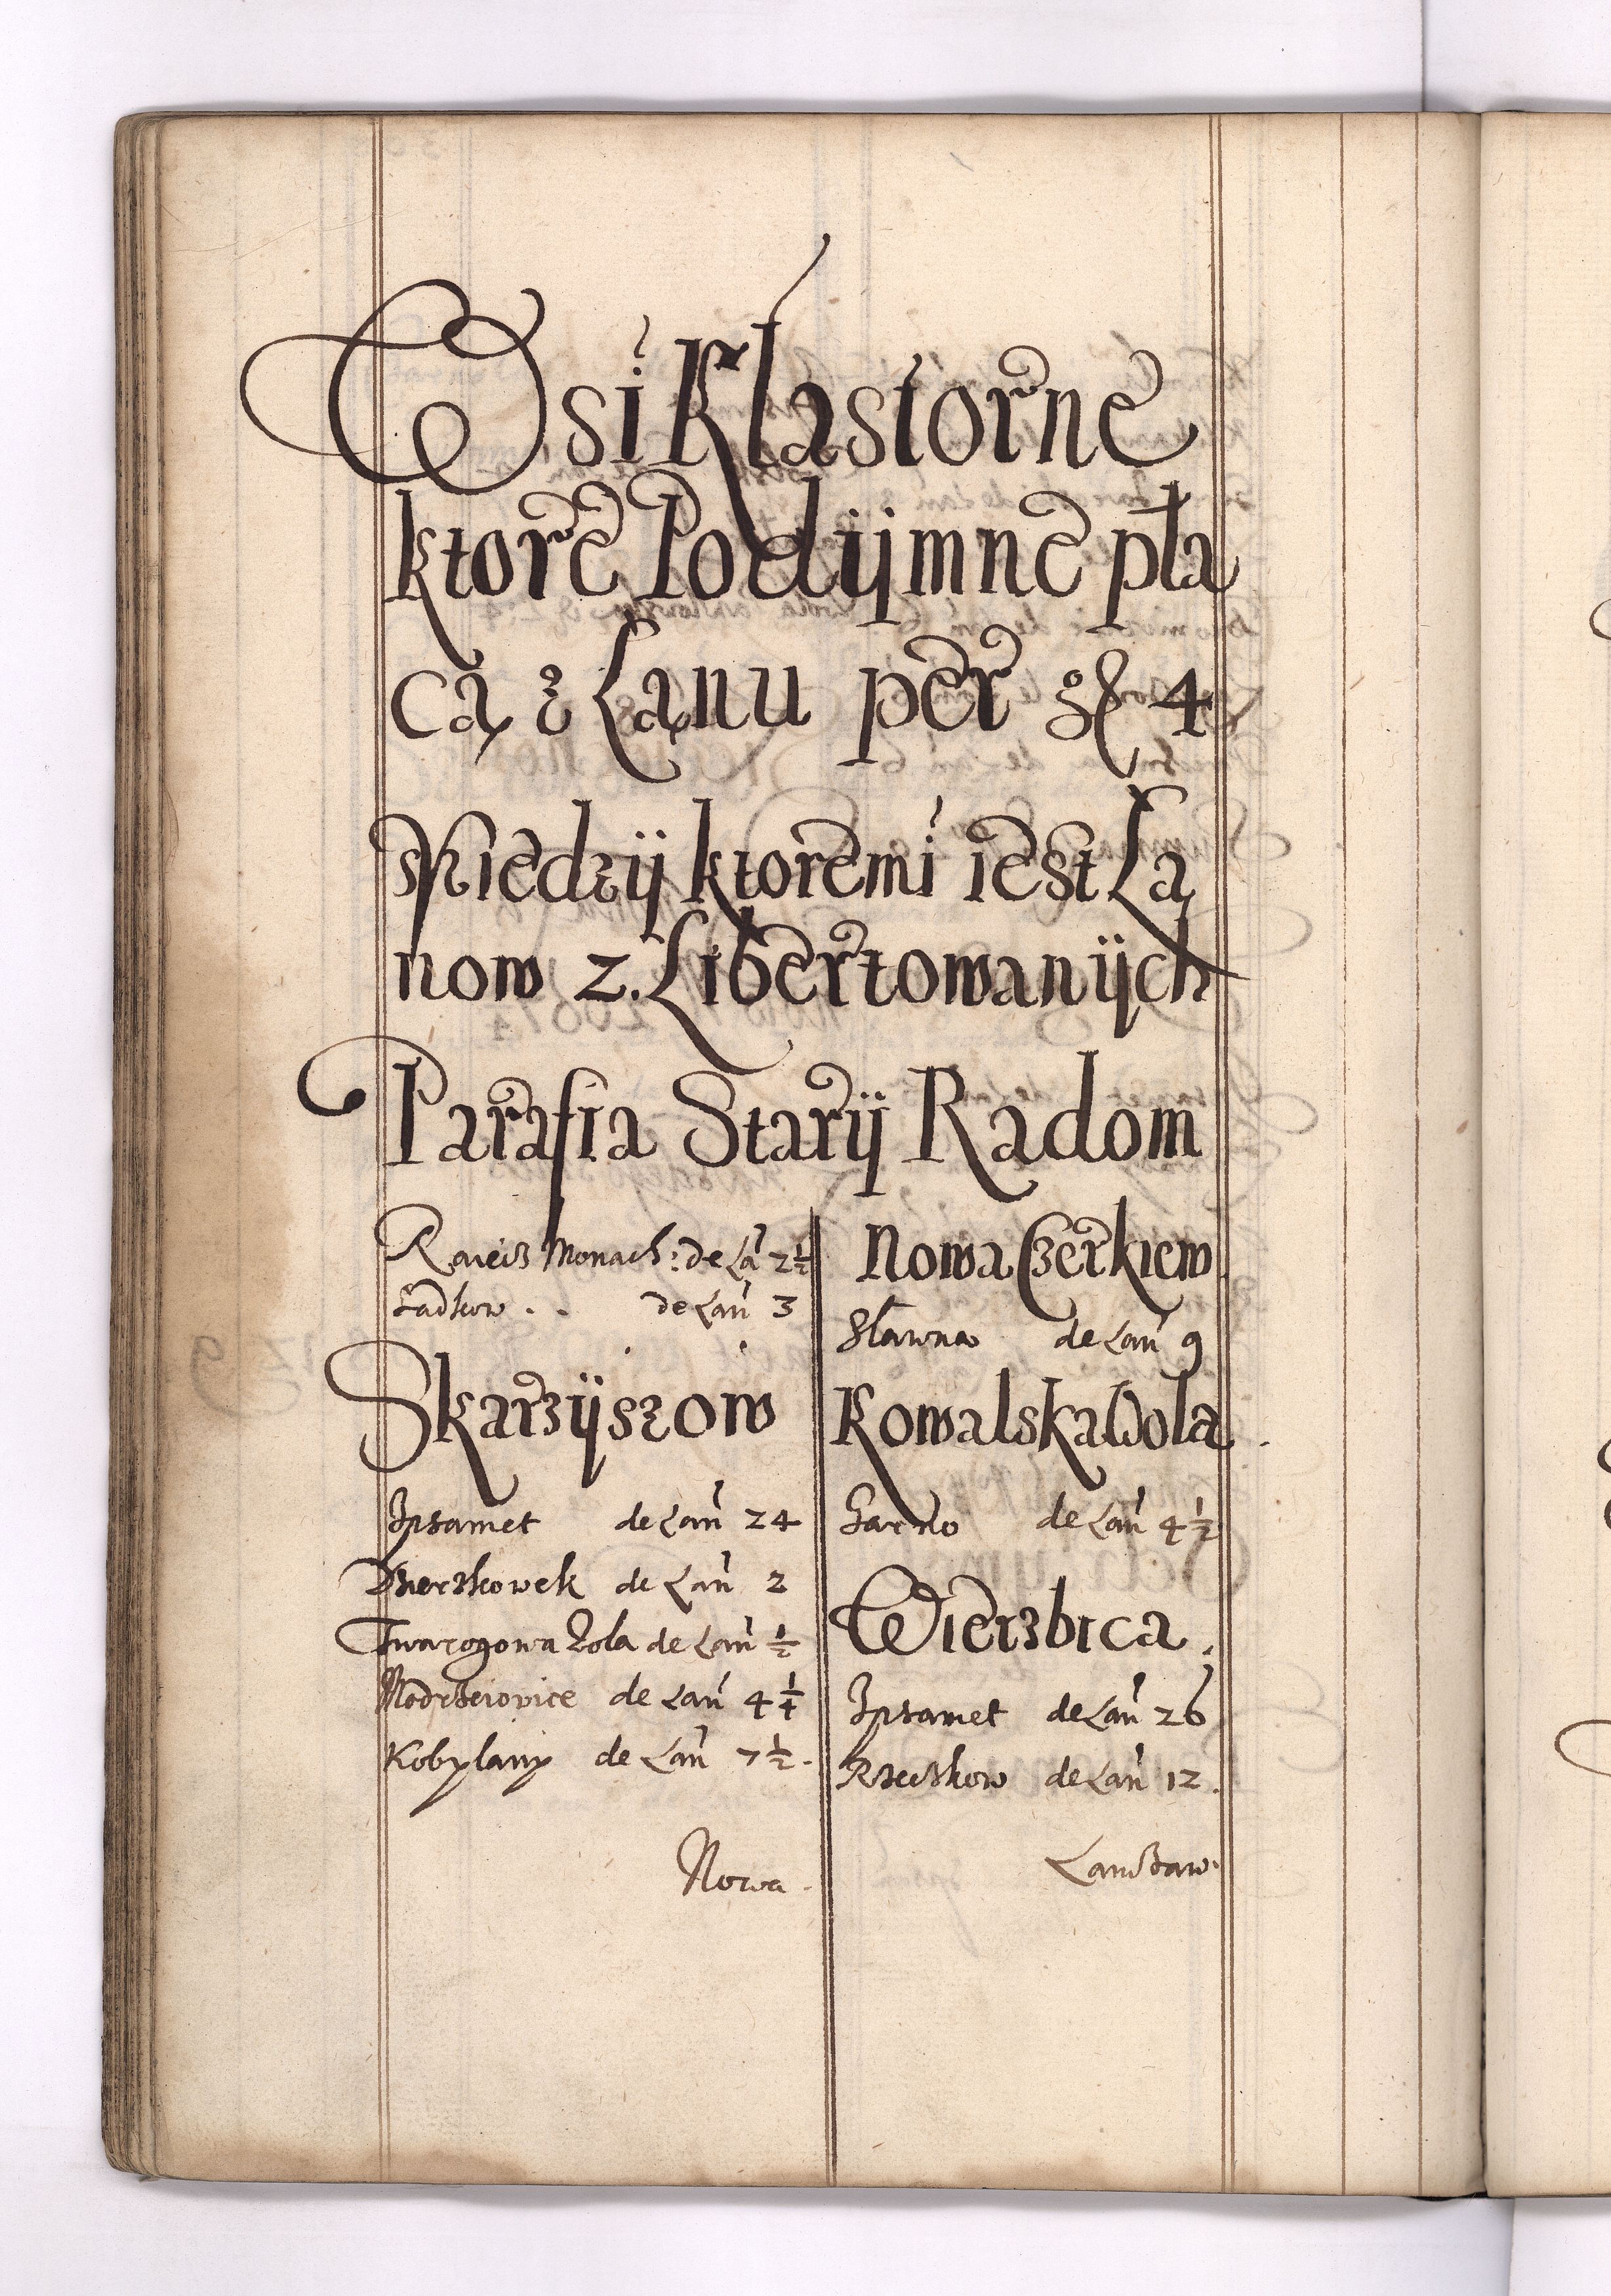 Wsi Klastorne
ktore Podijmne pła
cą z Łanu per gł 4
Miedzij ktoremi iest Ła
now 2. Libertowanijch
Parafia Starij Radom
Raiecz Monach: de Lan̄ 2 1/2
Sadkow . . de Lan̄ 3
Skarzijszow
Ipsamet de Lan̄ 24
Dzierzkowek de Lan̄ 2
Twarogowa Zola de Lan̄ 1/2
Modrzeiovice de Lan̄ 4 1/4
Kobylany de Lan̄ 7 1/2.
Nowa.
Nowa Czerkiew
Sławna de Lan̄ 9
Kowalska Wola.
Garno de Lan̄ 4 1/2
Wierzbica.
Ipsamet de Lan̄ 26
Rzeczkow de Lan̄ 12.